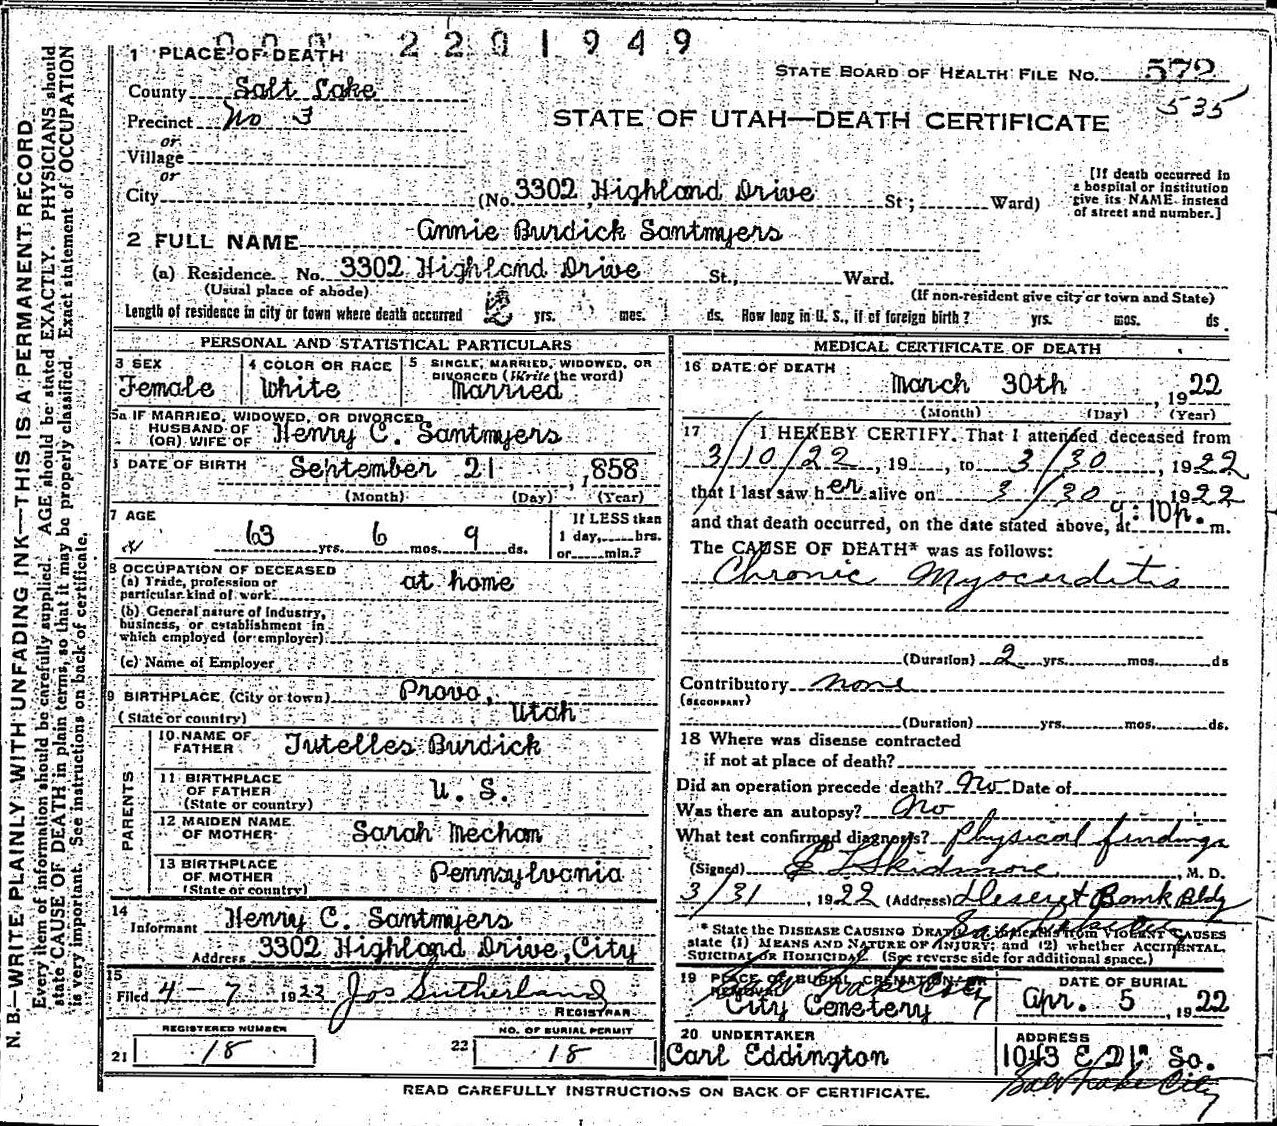 0 0 0 2 2 0 1 9 4 9
1 PLACE OF DEATH
STATE BOARD OF HEALTH FILE NO. 572
535
County Salt Lake
Precinct No 3
STATE OF UTAH—DEATH CERTIFICATE
or
Village
or
City (No. 3302 Highland Drive St; Ward)
[If death occurred in
a hospital or institution
give its NAME instead
of street and number.]
2 FULL NAME Annie Burdick Santmyers
(a) Residence. No. 3302 Highland Drive St., Ward.
(Usual place of abode) (If non-resident give city or town and State)
Length of residence in city or town where death occurred yrs. mos. ds. How long in U. S., if of foreign birth? yrs. mos. ds.
PERSONAL AND STATISTICAL PARTICULARS
3 SEX
Female
4 COLOR OR RACE
White
5 SINGLE, MARRIED, WIDOWED, OR
DIVORCED (Write the word)
Married
5a IF MARRIED, WIDOWED, OR DIVORCED
HUSBAND OF
(OR) WIFE OF Henry C. Santmyers
DATE OF BIRTH September 21, 1858
(Month) (Day) (Year)
7 AGE
63 yrs. 6 mos. 9 ds.
If LESS than
1 day, hrs.
or min.?
8 OCCUPATION OF DECEASED
(a) Trade, profession or
particular kind of work at home
(b) General nature of Industry,
business, or establishment in
which employed (or employer)
(c) Name of Employer
9 BIRTHPLACE (City or town) Provo,
(State or country) Utah
PARENTS
10 NAME OF
FATHER Tutelles Burdick
11 BIRTHPLACE
OF FATHER U. S.
(State or country)
12 MAIDEN NAME
OF MOTHER Sarah Mechan
13 BIRTHPLACE
OF MOTHER Pennsylvania
(State or country)
14
Informant Henry C. Santmyers
Address 3302 Highland Drive, City
15
Filed 4-7 1922 Jos Sutherland
REGISTRAR
REGISTERED NUMBER
21 18
NO. OF BURIAL PERMIT
22 18
MEDICAL CERTIFICATE OF DEATH
16 DATE OF DEATH
March 30th, 1922
(Month) (Day) (Year)
17 I HEREBY CERTIFY, That I attended deceased from
3/10/22, 19, to 3/30, 1922
that I last saw her alive on 3/30 1922
and that death occurred, on the date stated above, at 9:10 p. m.
The CAUSE OF DEATH* was as follows:
Chronic Myocarditis
(Duration) 2 yrs. mos. ds
Contributory none
(SECONDARY)
(Duration) yrs. mos. ds.
18 Where was disease contracted
if not at place of death?
Did an operation precede death? No Date of
Was there an autopsy? No
What test confirmed diagnosis? Physical findings
(Signed) Skidmore, M. D.
3/31, 1922 (Address) Deseret Bank Bldg
* State the DISEASE CAUSING DEATH, CAUSES
state (1) MEANS AND NATURE OF INJURY; and (2) whether ACCIDENTAL,
SUICIDAL OR HOMICIDAL. (See reverse side for additional space.)
19 PLACE OF BURIAL, CREMATION OR
City Cemetery
DATE OF BURIAL
Apr. 5, 1922
20 UNDERTAKER
Carl Eddington
ADDRESS
1043 E 21" So.
Salt Lake City
READ CAREFULLY INSTRUCTIONS ON BACK OF CERTIFICATE.
N. B.—WRITE PLAINLY WITH UNFADING INK—THIS IS A PERMANENT RECORD
Every item of information should be carefully supplied. AGE should be stated EXACTLY. PHYSICIANS should
state CAUSE OF DEATH in plain terms, so that it may be properly classified. Exact statement of OCCUPATION
is very important. See instructions on back of certificate.